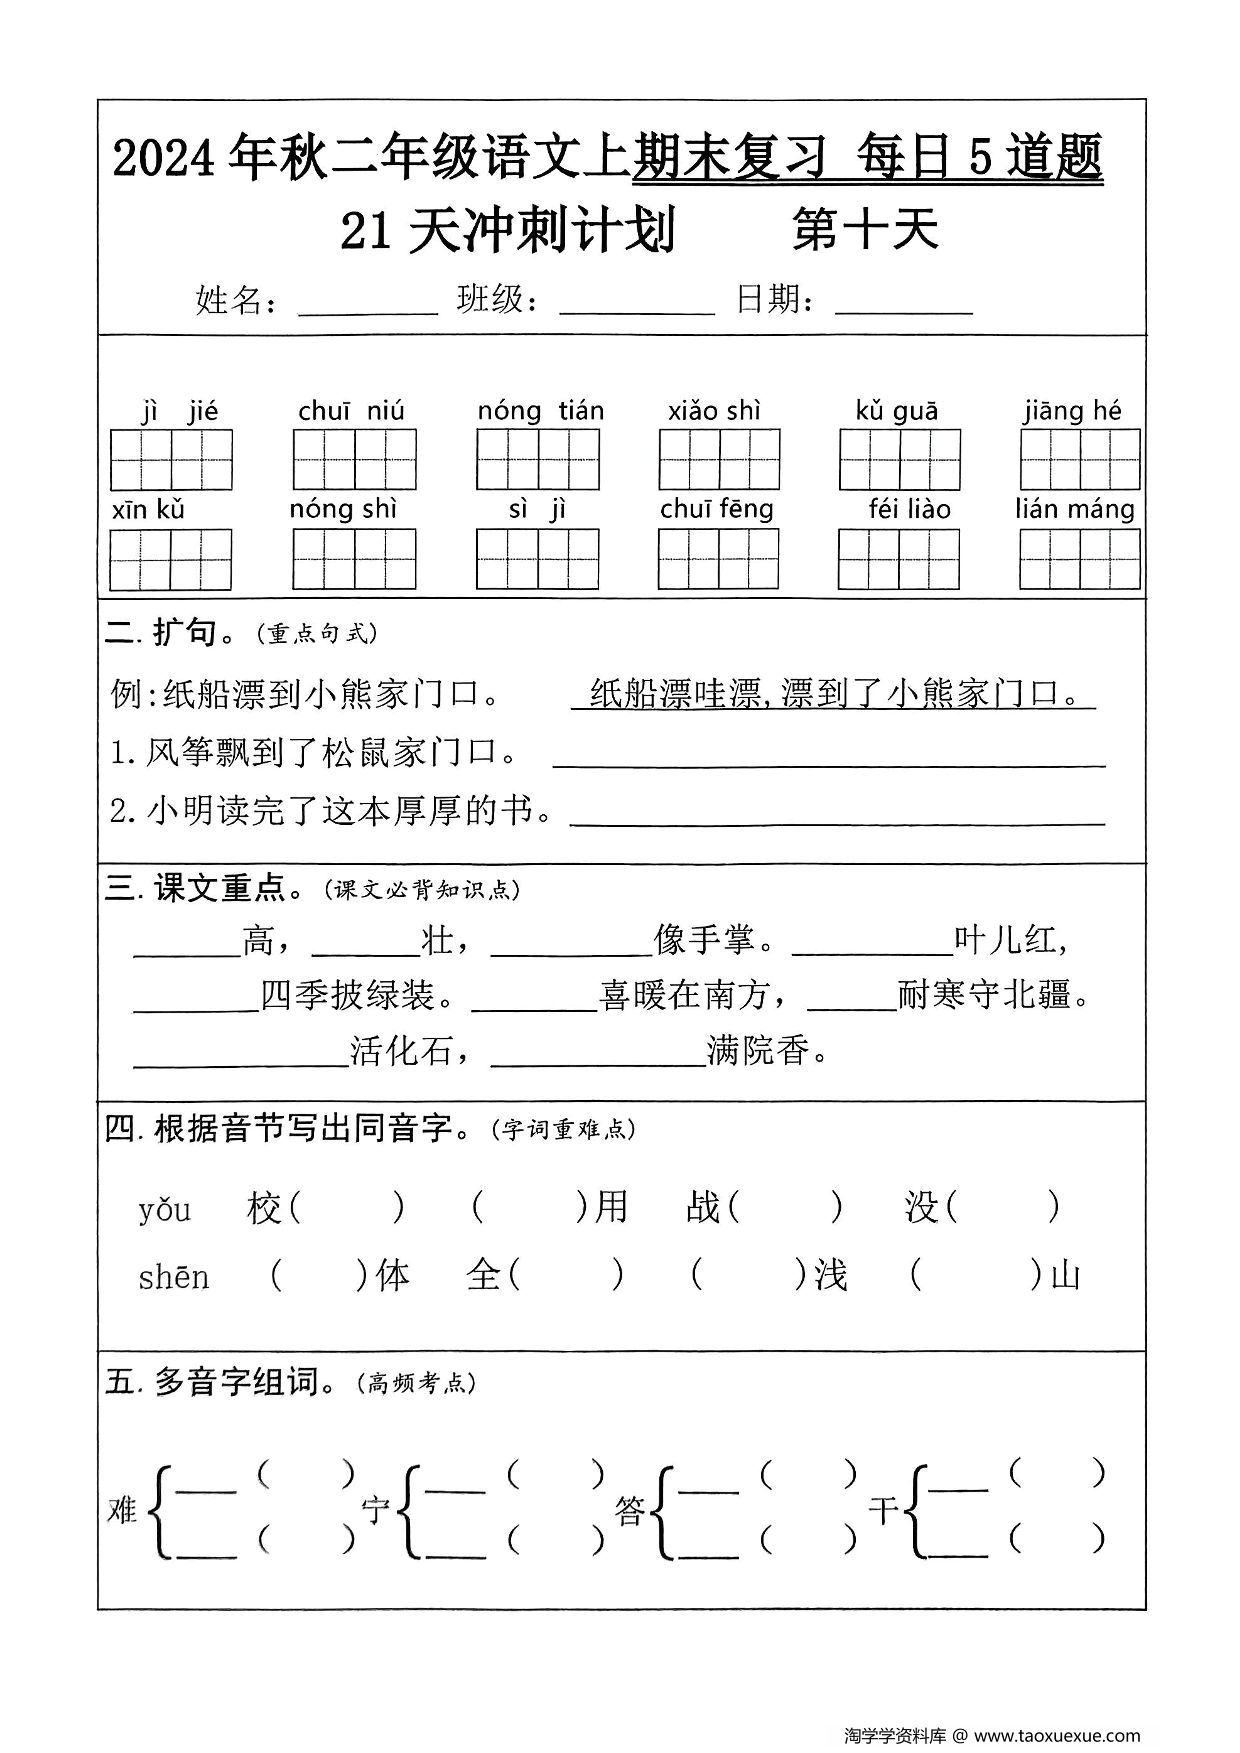 2024年秋二年级语文上期末复习 每日5道题
21天冲刺计划 第十天
姓名：________ 班级：_________ 日期：________
jì jié chuī niú nóng tián xiǎo shì kǔ guā jiāng hé
xīn kǔ nóng shì sì jì chuī fēng féi liào lián máng
二.扩句。（重点句式）
例:纸船漂到小熊家门口。 纸船漂哇漂,漂到了小熊家门口。
1.风筝飘到了松鼠家门口。________________
2.小明读完了这本厚厚的书。________________
三.课文重点。（课文必背知识点）
______高，______壮，_________像手掌。_________叶儿红,
_______四季披绿装。_______喜暖在南方，_____耐寒守北疆。
____________活化石，____________满院香。
四.根据音节写出同音字。（字词重难点）
yǒu 校( ) ( )用 战( ) 没( )
shēn ( )体 全( ) ( )浅 ( )山
五.多音字组词。（高频考点）
难{___( ) 宁{___( ) 答{___( ) 干{___( )
___( ) ___( ) ___( ) ___( )
淘学学资料库 @ www.taoxuexue.com